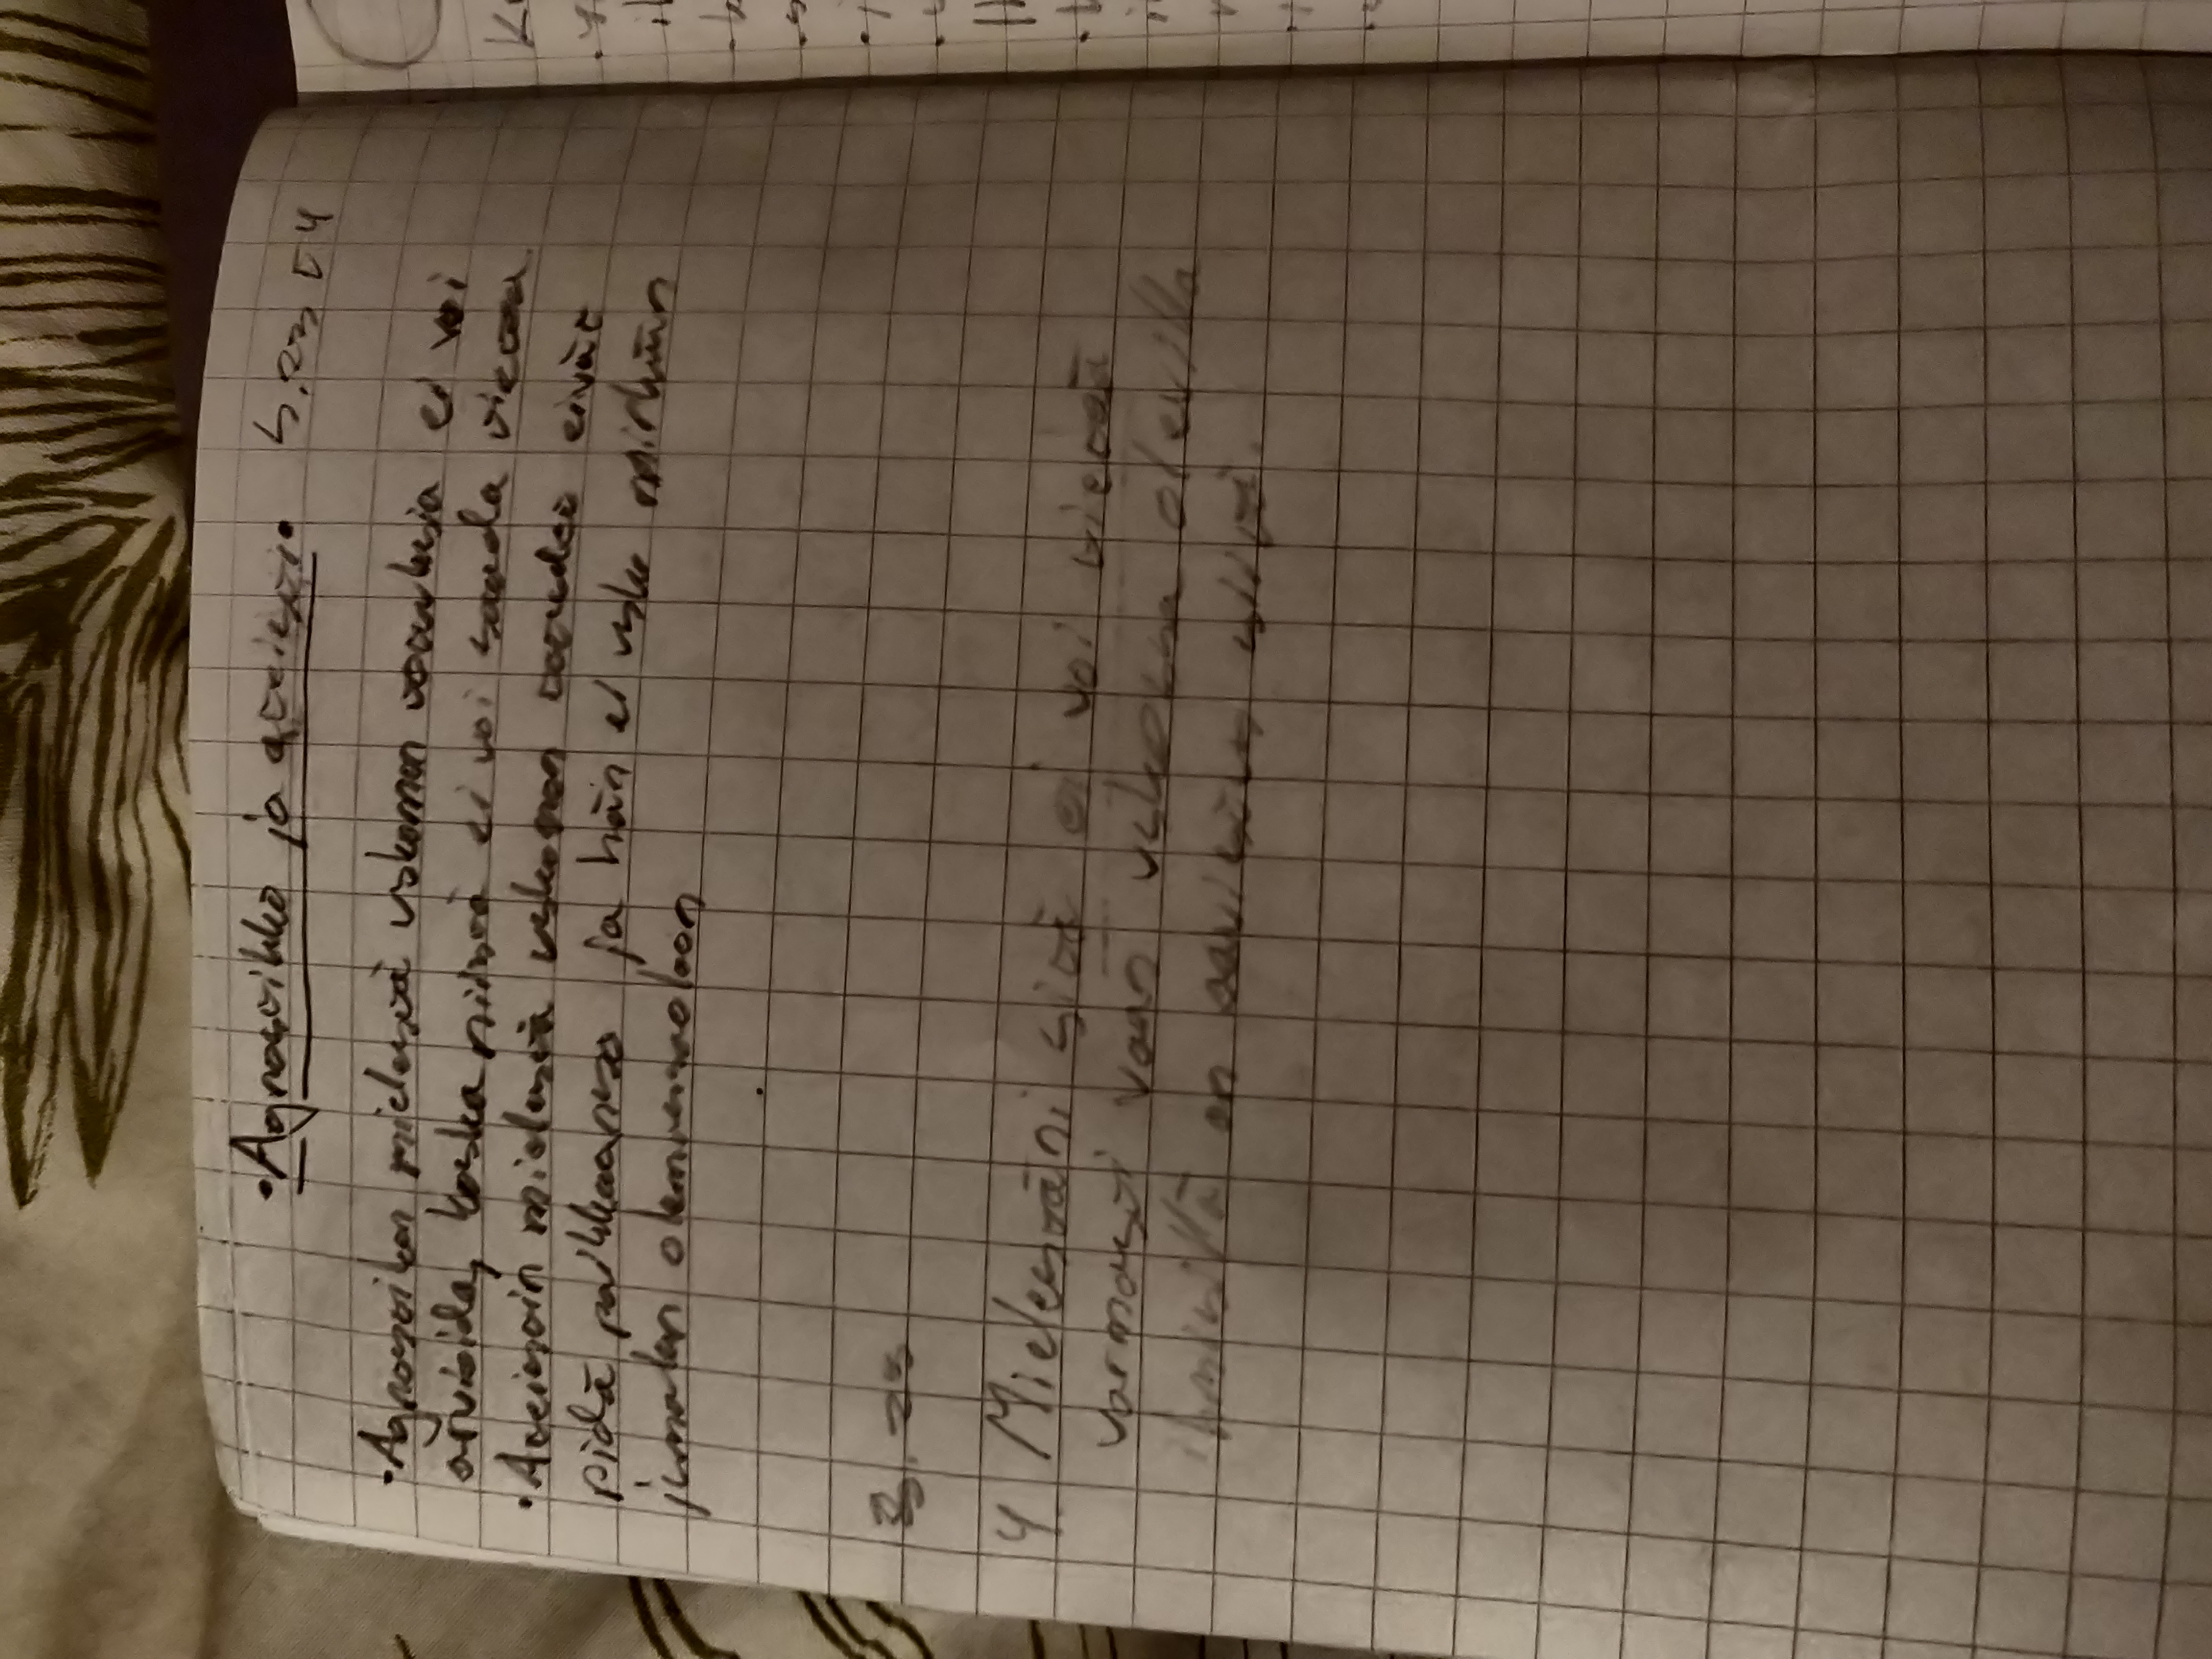 • Agnostikko ja ateisti •
• Agnostikon mielestä uskonnon vaatuksia ei voi
arvioida, koska niistä ei voi saada tietoa
• Ateistin mielestä uskonnon totuudet eivät
pidä paikkaansa ja hän ei usko mihinkään
jumalan olemassaoloon
4 Mielestäni sitä ei voi tietää
varmasti vaan uskonna olevilla
ihmisillä on